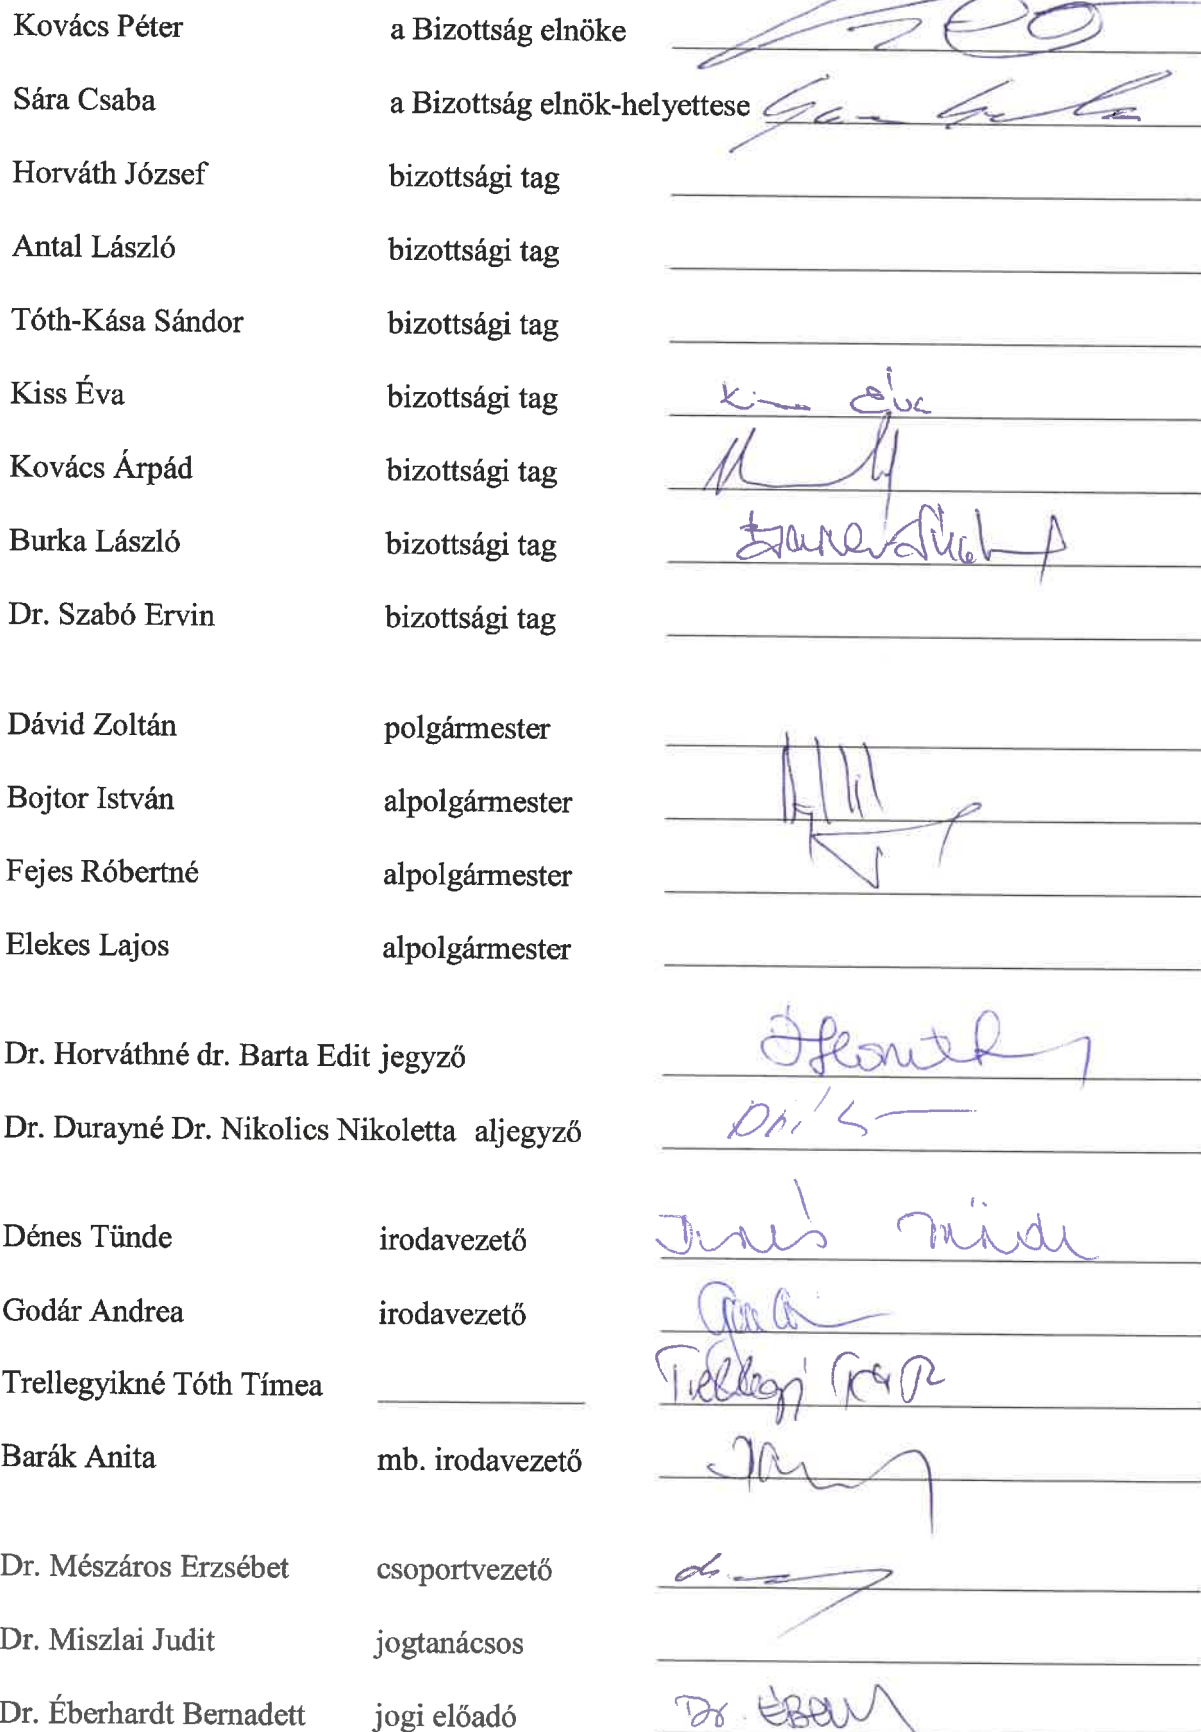 Kovács Péter a Bizottság elnöke
Sára Csaba a Bizottság elnök-helyettese
Horváth József bizottsági tag
Antal László bizottsági tag
Tóth-Kása Sándor bizottsági tag
Kiss Éva bizottsági tag Kiss Éva
Kovács Árpád bizottsági tag
Burka László bizottsági tag
Dr. Szabó Ervin bizottsági tag
Dávid Zoltán polgármester
Bojtor István alpolgármester
Fejes Róbertné alpolgármester
Elekes Lajos alpolgármester
Dr. Horváthné dr. Barta Edit jegyző
Dr. Durayné Dr. Nikolics Nikoletta aljegyző
Dénes Tünde irodavezető Dénes Tünde
Godár Andrea irodavezető
Trellegyikné Tóth Tímea
Barák Anita mb. irodavezető
Dr. Mészáros Erzsébet csoportvezető
Dr. Miszlai Judit jogtanácsos
Dr. Éberhardt Bernadett jogi előadó Dr.